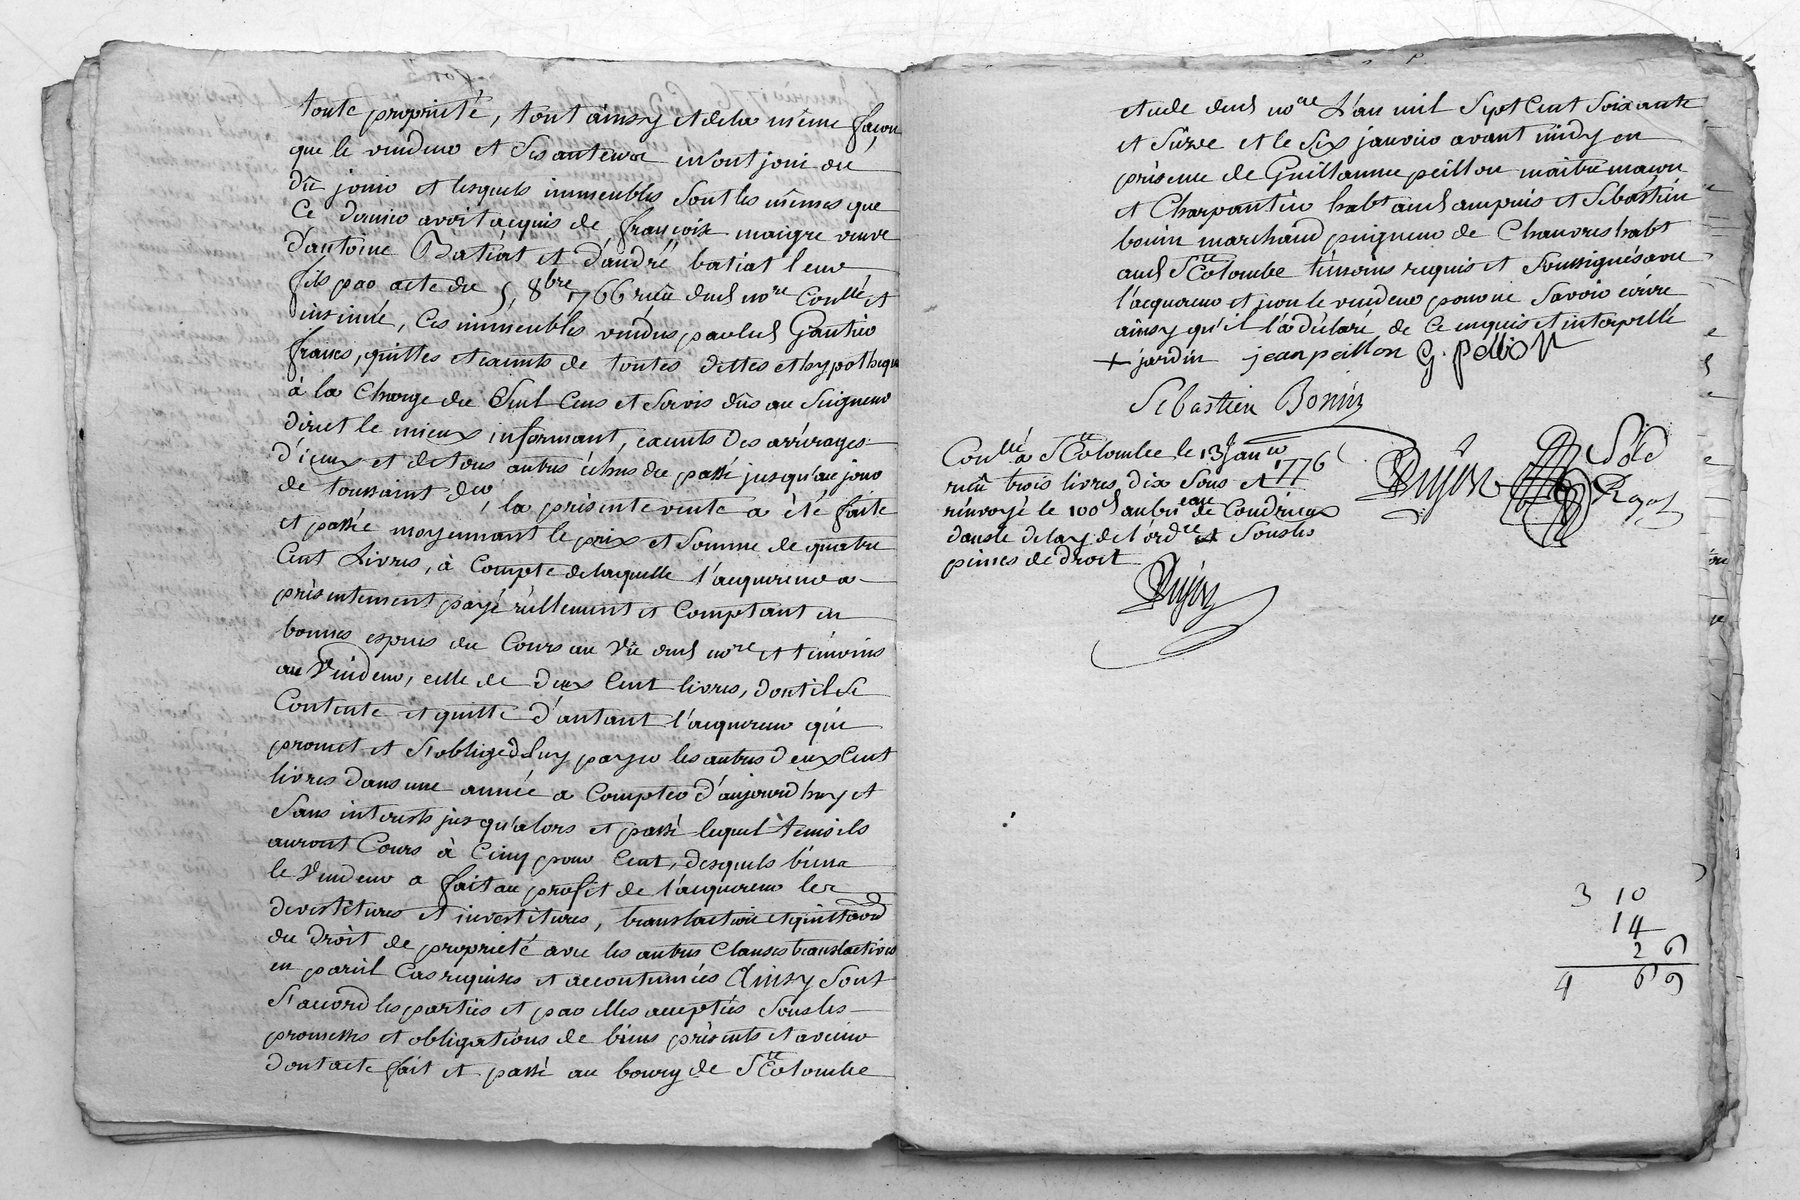 toute proprieté, tout ainsy et de la même façon
que le vendeur et ses auteurs en ont joui ou
dû jouir et lesquels immeubles sont les mêmes que
Ce dernier avoit acquis de françoise maigre veuve
d'antoine Batiat et d'andré batiat leur
fils par acte du 5, 8bre 1766 reçu dud nore Conllé et
insinué, Ces immeubles vendus par led Gautier
francs, quittes et exempts de toutes dettes et hypotheques
à la Charge du seul Cens et servis dûs au Seigneur
direct le mieux informant, exempts des arrérages
d'iceux et de tous autres échus du passé jusqu'au jour
de toussaint der, la présente vente a été faite
et passée moyennant le prix et somme de quatre
Cent Livres, à Compte de laquelle l'acquereur a
présentement payé réellement et Comptant en
bonnes espèces du Cours au vû dud nore et témoins
au Vendeur, celle de deux Cent livres, dont il se
Contente et quitte d'autant l'acquereur qui
promet et s'oblige de luy payer les autres deux Cent
livres dans une année a Compter d'aujourd'huy et
Sans interests jusqu'alors et passé lequel tems ils
auront Cours à Cinq pour Cent, desquels biens
le Vendeur a fait au profit de l'acquereur les
devestitures et investitures, translation et quittance
du droit de proprieté avec les autres Clauses translatives
en pareil Cas requises et accoutumées Ainsy sont
d'accord les parties et par elles acceptées sous les
promesses et obligations de biens présents et avenir
dont acte fait et passé au bourg de Ste Colombe
etude dud nore L'an mil Sept Cent Soixante
et Seize et le Six janvier avant midy en
présence de Guillaume peillon maitre maçon
et Charpentier habt aud ampuis et Sébastien
bonin marchand peigneur de Chanvres habt
aud Ste Colombe témoins requis et soussignés avec
l'acquereur et non le vendeur pour ne savoir écrire
ainsy qu'il l'a déclaré de Ce enquis et interpellé
+ jardin jean peillon G. péllion
Sebastien Bonin
Conllé à Ste Colombe le 13 Janer 1776
reçu trois livres dix sous et
renvoyé le 100d au bureau de Condrieux
dans le delay de l'ordce et sous les
peines de droit
Dujin
3 10
14
2 9
4 6 9